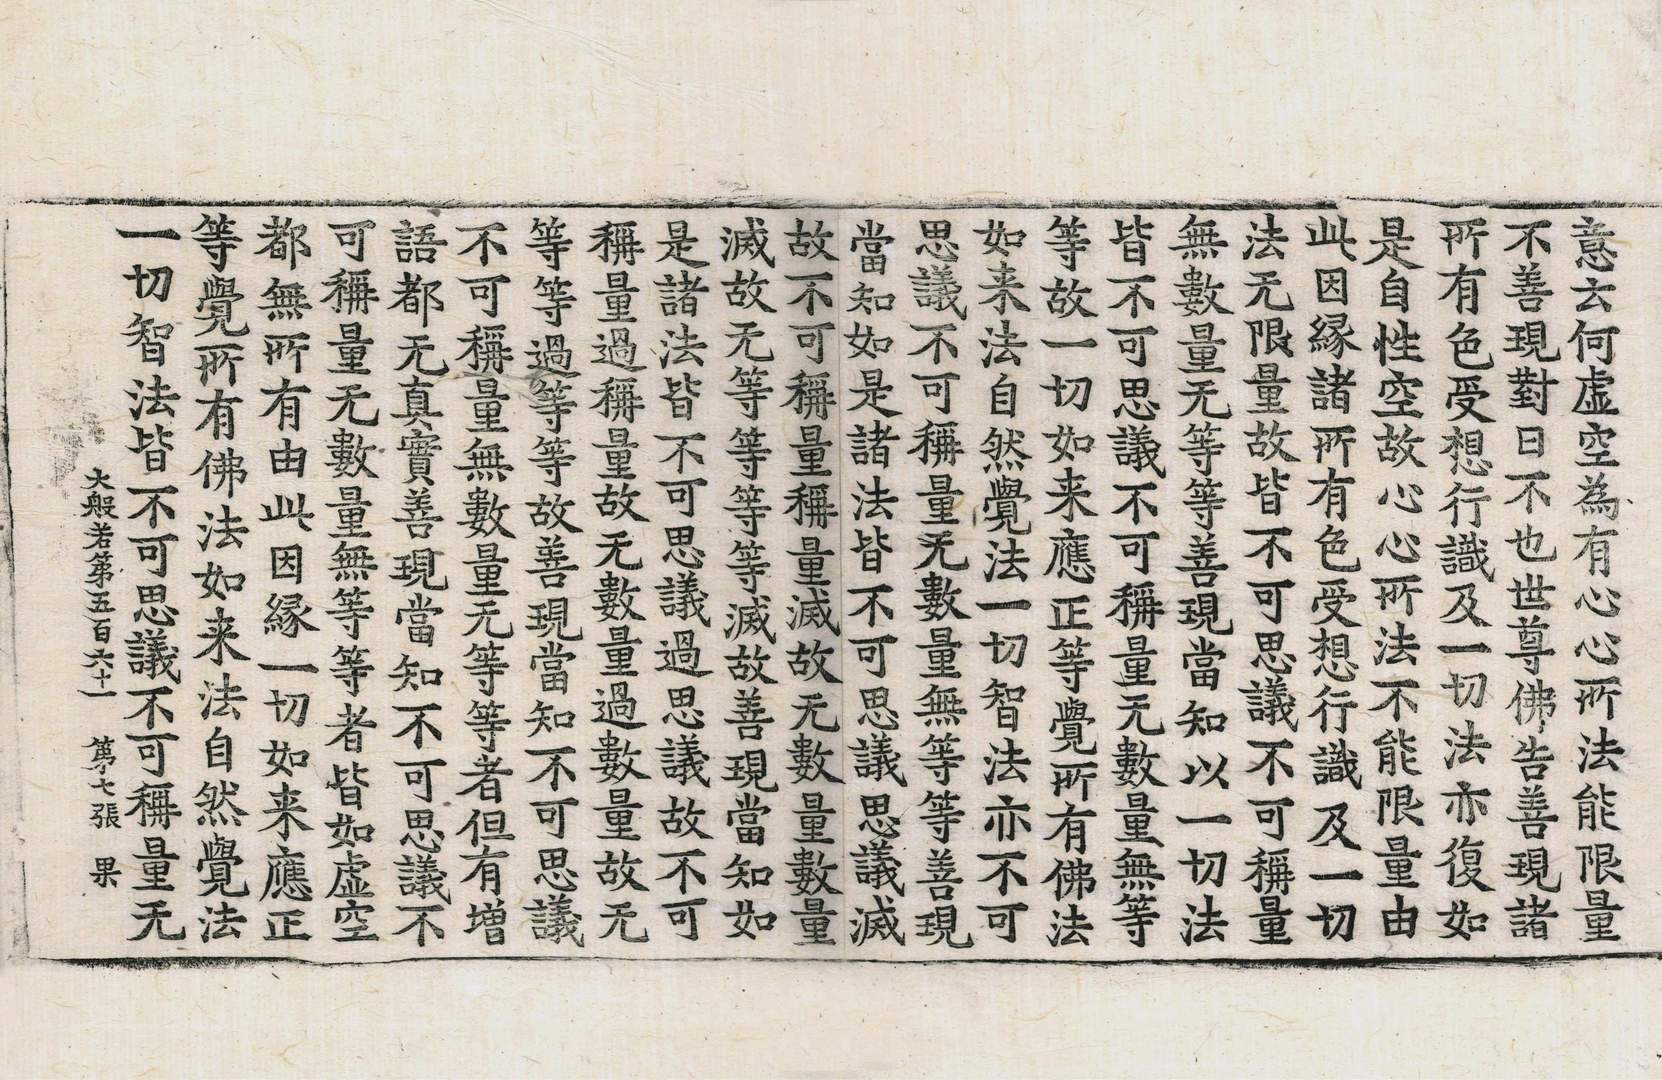 意云何虛空為有心心所法能限量
不善現對曰不也世尊佛告善現諸
所有色受想行識及一切法亦復如
是自性空故心心所法不能限量由
此因緣諸所有色受想行識及一切
法无限量故皆不可思議不可稱量
無數量无等等善現當知以一切法
皆不可思議不可稱量无數量無等
等故一切如来應正等覺所有佛法
如来法自然覺法一切智法亦不可
思議不可稱量无數量無等等善現
當知如是諸法皆不可思議思議滅
故不可稱量稱量滅故无數量數量
滅故无等等等等滅故善現當知如
是諸法皆不可思議過思議故不可
稱量過稱量故无數量過數量故无
等等過等等故善現當知不可思議
不可稱量無數量无等等者但有增
語都无真實善現當知不可思議不
可稱量无數量無等等者皆如虛空
都無所有由此因緣一切如来應正
等覺所有佛法如来法自然覺法
一切智法皆不可思議不可稱量无
大般若第五百六十一 第七張 果